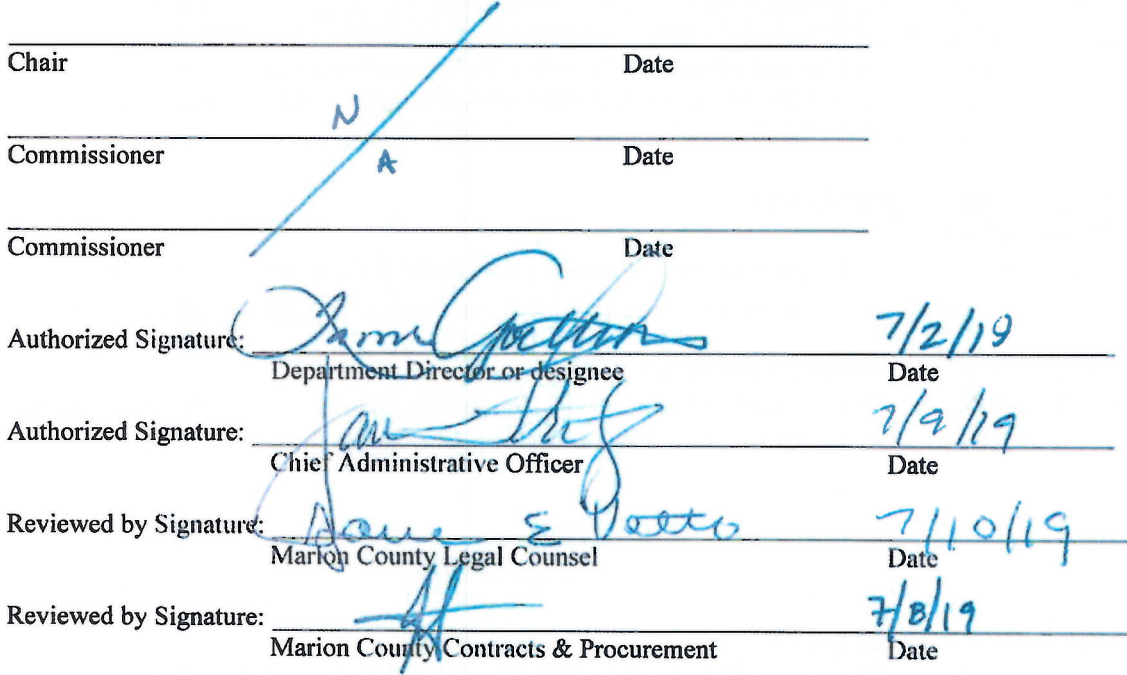 Chair Date
N
Commissioner Date
A
Commissioner Date
Authorized Signature: 7/2/19
Department Director or designee Date
Authorized Signature: 7/9/19
Chief Administrative Officer Date
Reviewed by Signature: 7/10/19
Marion County Legal Counsel Date
Reviewed by Signature: 7/8/19
Marion County Contracts & Procurement Date